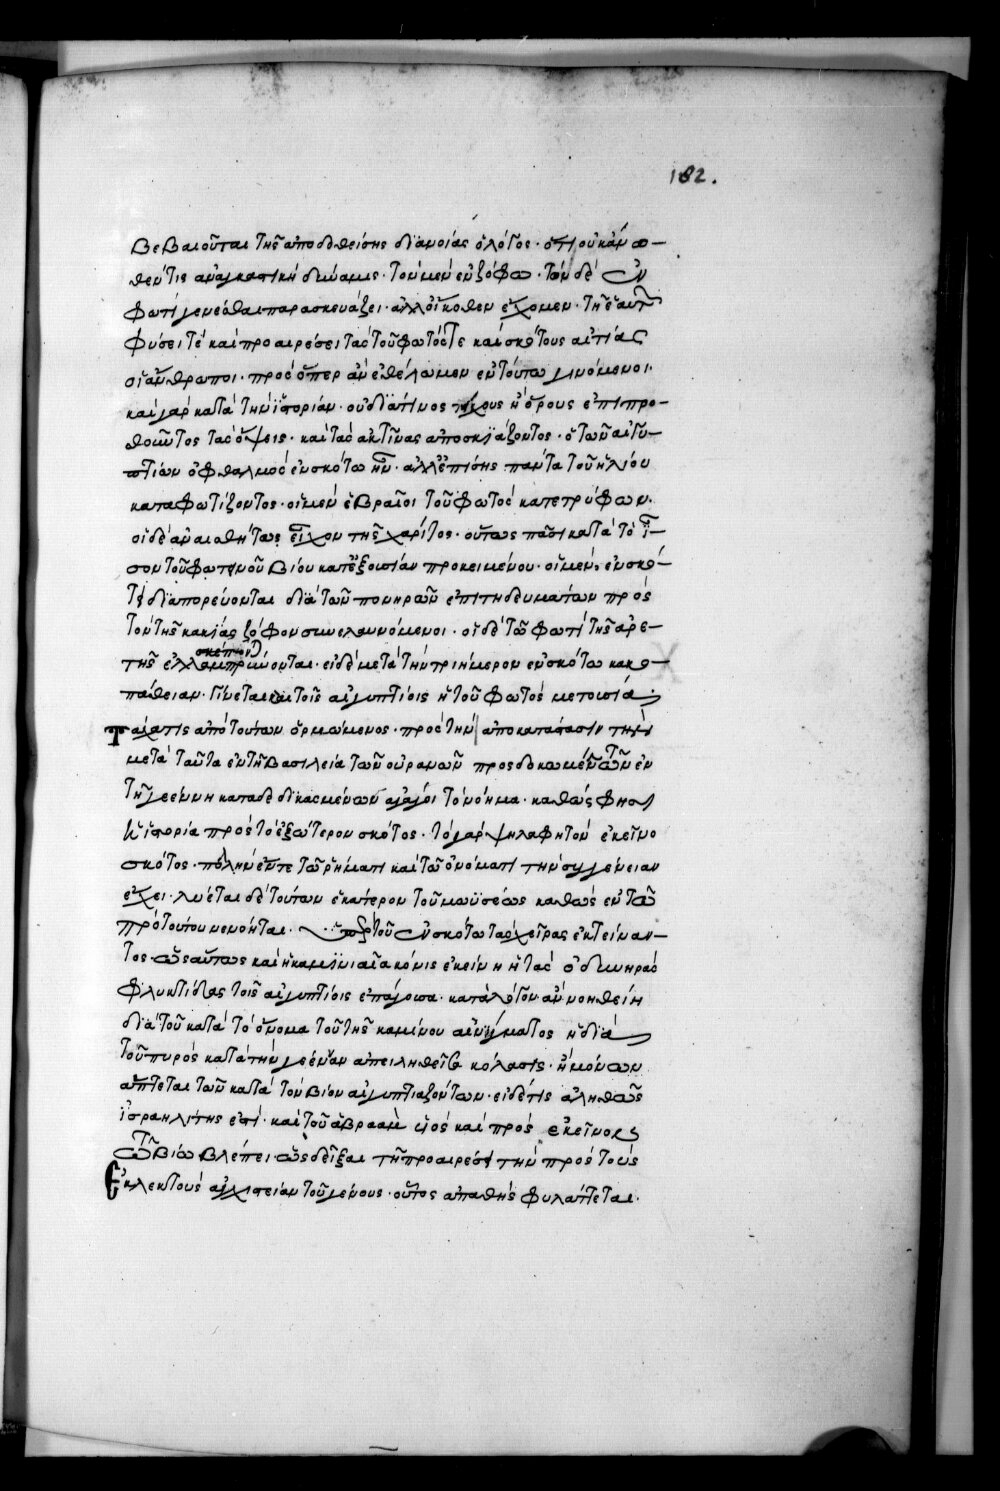 182.
βεβαιοῦται τῆς ἀποδοθείσης διανοίας ὁ λόγος· ὅτι οὐκ ἄνω-
θέν τις ἀναγκαστικὴ δύναμις· τὸν μὲν ἐν ζόφω· τὸν δὲ ἐν
φωτὶ γενέσθαι παρασκευάζει· ἀλλ' οἴκοθεν ἔχομεν· τῆ ἑαυτῶν
φύσει τὲ καὶ προαιρέσει τὰς τοῦ φωτός τε καὶ σκότους αἰτίας
οἱ ἄνθρωποι· πρὸς ὅπερ ἂν ἐθέλωμεν ἐν τούτω γινόμενοι.
καὶ γὰρ κατὰ τὴν ἱστορίαν· οὐ διά τινος τείχους ἢ ὄρους ἐπιπρο-
θοῦντος τὰς ὄψεις· καὶ τὰς ἀκτῖνας ἀποσκιάζοντος· ὁ τῶν αἰγυ-
πτίων ὀφθαλμὸς ἐν σκότω ἦν· ἀλλ' ἐπίσης πάντα τοῦ ἡλίου
καταφωτίζοντος· οἱ μὲν ἑβραῖοι τοῦ φωτὸς κατετρύφων.
οἱ δὲ ἀναισθήτως εἶχον τῆς χάριτος· οὕτως πᾶσι κατὰ τὸ ἴ-
σον τοῦ φωτεινοῦ βίου κατ' ἐξουσίαν προκειμένου· οἱ μὲν ἐν σκό-
τει διαπορεύονται διὰ τῶν πονηρῶν ἐπιτηδευμάτων πρὸς
τὸν τῆς κακίας ζόφον συνελαυνόμενοι· οἱ δὲ τῶ φωτὶ τῆς ἀρε-
τῆς ἐλλαμπρύνονται· εἰ δὲ μετὰ τὴν τριήμερον ἐν σκότω κακο-
πάθειαν· γίνεται καὶ τοῖς αἰγυπτίοις ἡ τοῦ φωτὸς μετουσία.
Τάχα τις ἀπὸ τούτων ὁρμώμενος· πρὸς τὴν ἀποκατάστασιν τὴν
μετὰ ταῦτα ἐν τῆ βασιλεία τῶν οὐρανῶν προσδοκωμένην τῶν ἐν
τῆ γεέννη καταδεδικασμένων ἀγάγοι τὸ νόημα· καθώς φησιν
ἡ ἱστορία πρὸς τὸ ἐξώτερον σκότος· τὸ γὰρ ψηλαφητὸν ἐκεῖνο
σκότος· πολλὴν ἔν τε τῶ ῥήματι καὶ τῶ ὀνόματι τὴν συγγένειαν
ἔχει· λύεται δὲ τούτων ἑκάτερον τοῦ μωϋσέως καθὼς ἐν τῶ
πρὸ τούτου νενόηται· ὑπὲρ τοῦ ἐν σκότω τὰς χεῖρας ἐκτείναν-
τος· ὡσαύτως καὶ ἡ καμινιαία κόνις ἐκείνη ἡ τὰς ὀδυνηρὰς
φλυκτίδας τοῖς αἰγυπτίοις ἐπάγουσα· κατὰ λόγον ἂν νοηθείη
διὰ τοῦ κατὰ τὸ ὄνομα τοῦ τῆς καμίνου αἰνίγματος ἡ διὰ
τοῦ πυρὸς κατὰ τὴν γέενναν ἀπειληθεῖσα κόλασις· ἢ μόνων
ἅπτεται τῶν κατὰ τὸν βίον αἰγυπτιαζόντων· εἰ δέ τις ἀληθῶς
ἰσραηλίτης ἐστί· καὶ τοῦ ἀβραὰμ υἱὸς καὶ πρὸς ἐκεῖνον
τῶ βίω βλέπει· ὡς δεῖξαι τῆ προαιρέσει τὴν πρὸς τοὺς
Ἐκλεκτοὺς ἀγχιστείαν τοῦ γένους· οὗτος ἀπαθὴς φυλάττεται·